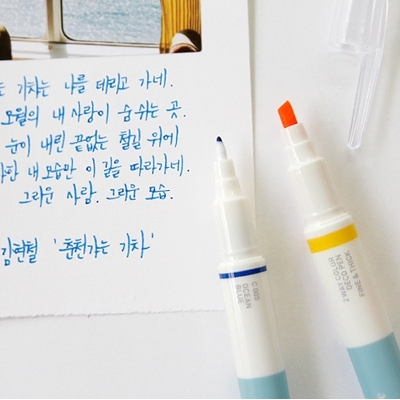 기차는 나를 데리고 가네.
오월의 내 사랑이 숨쉬는 곳.
눈이 내린 끝없는 철길 위에
내 모습만 이 길을 따라가네.
그리운 사람. 그리운 모습.
김현철 '춘천가는 기차'
C 003
OCEAN
BLUE
2 WAY COLOR
DECO PEN
FINE & THICK